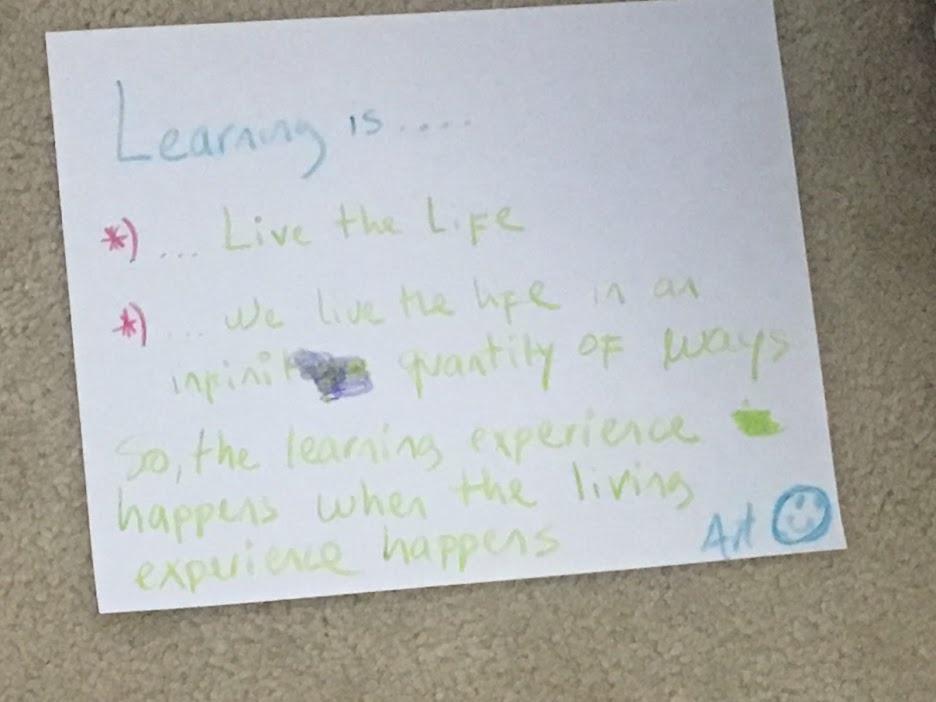 Learning is.....
*) ... Live the Life
*) ... We live the life in an
infinit quantity of ways
So, the learning experience
happens when the living
experience happens